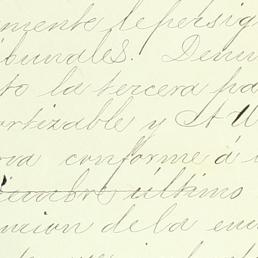 mente le persig
bunales. Denu
to la tercera pa
ortizable y
conforme a
iembre último
ncion de la en